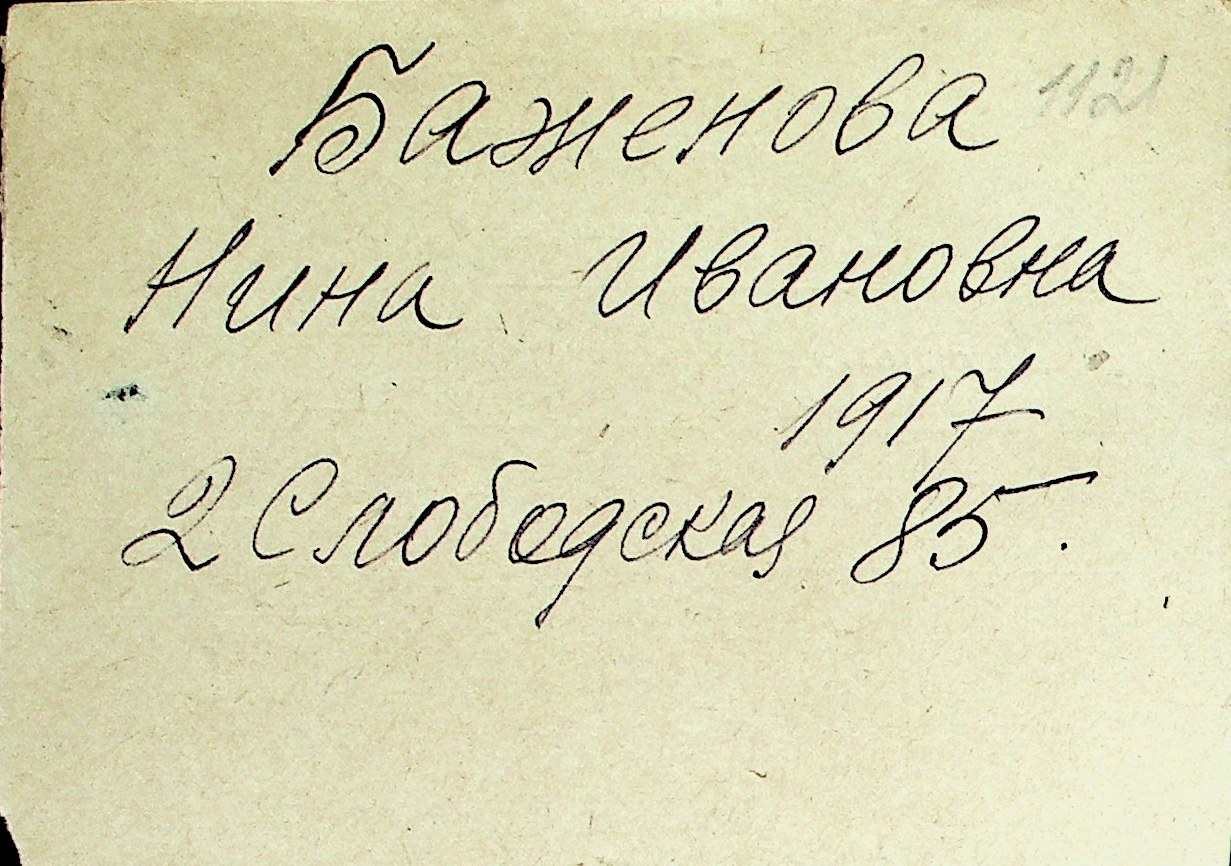 Баженова 1121
Нина Ивановна
1917
2 Слободская 85.